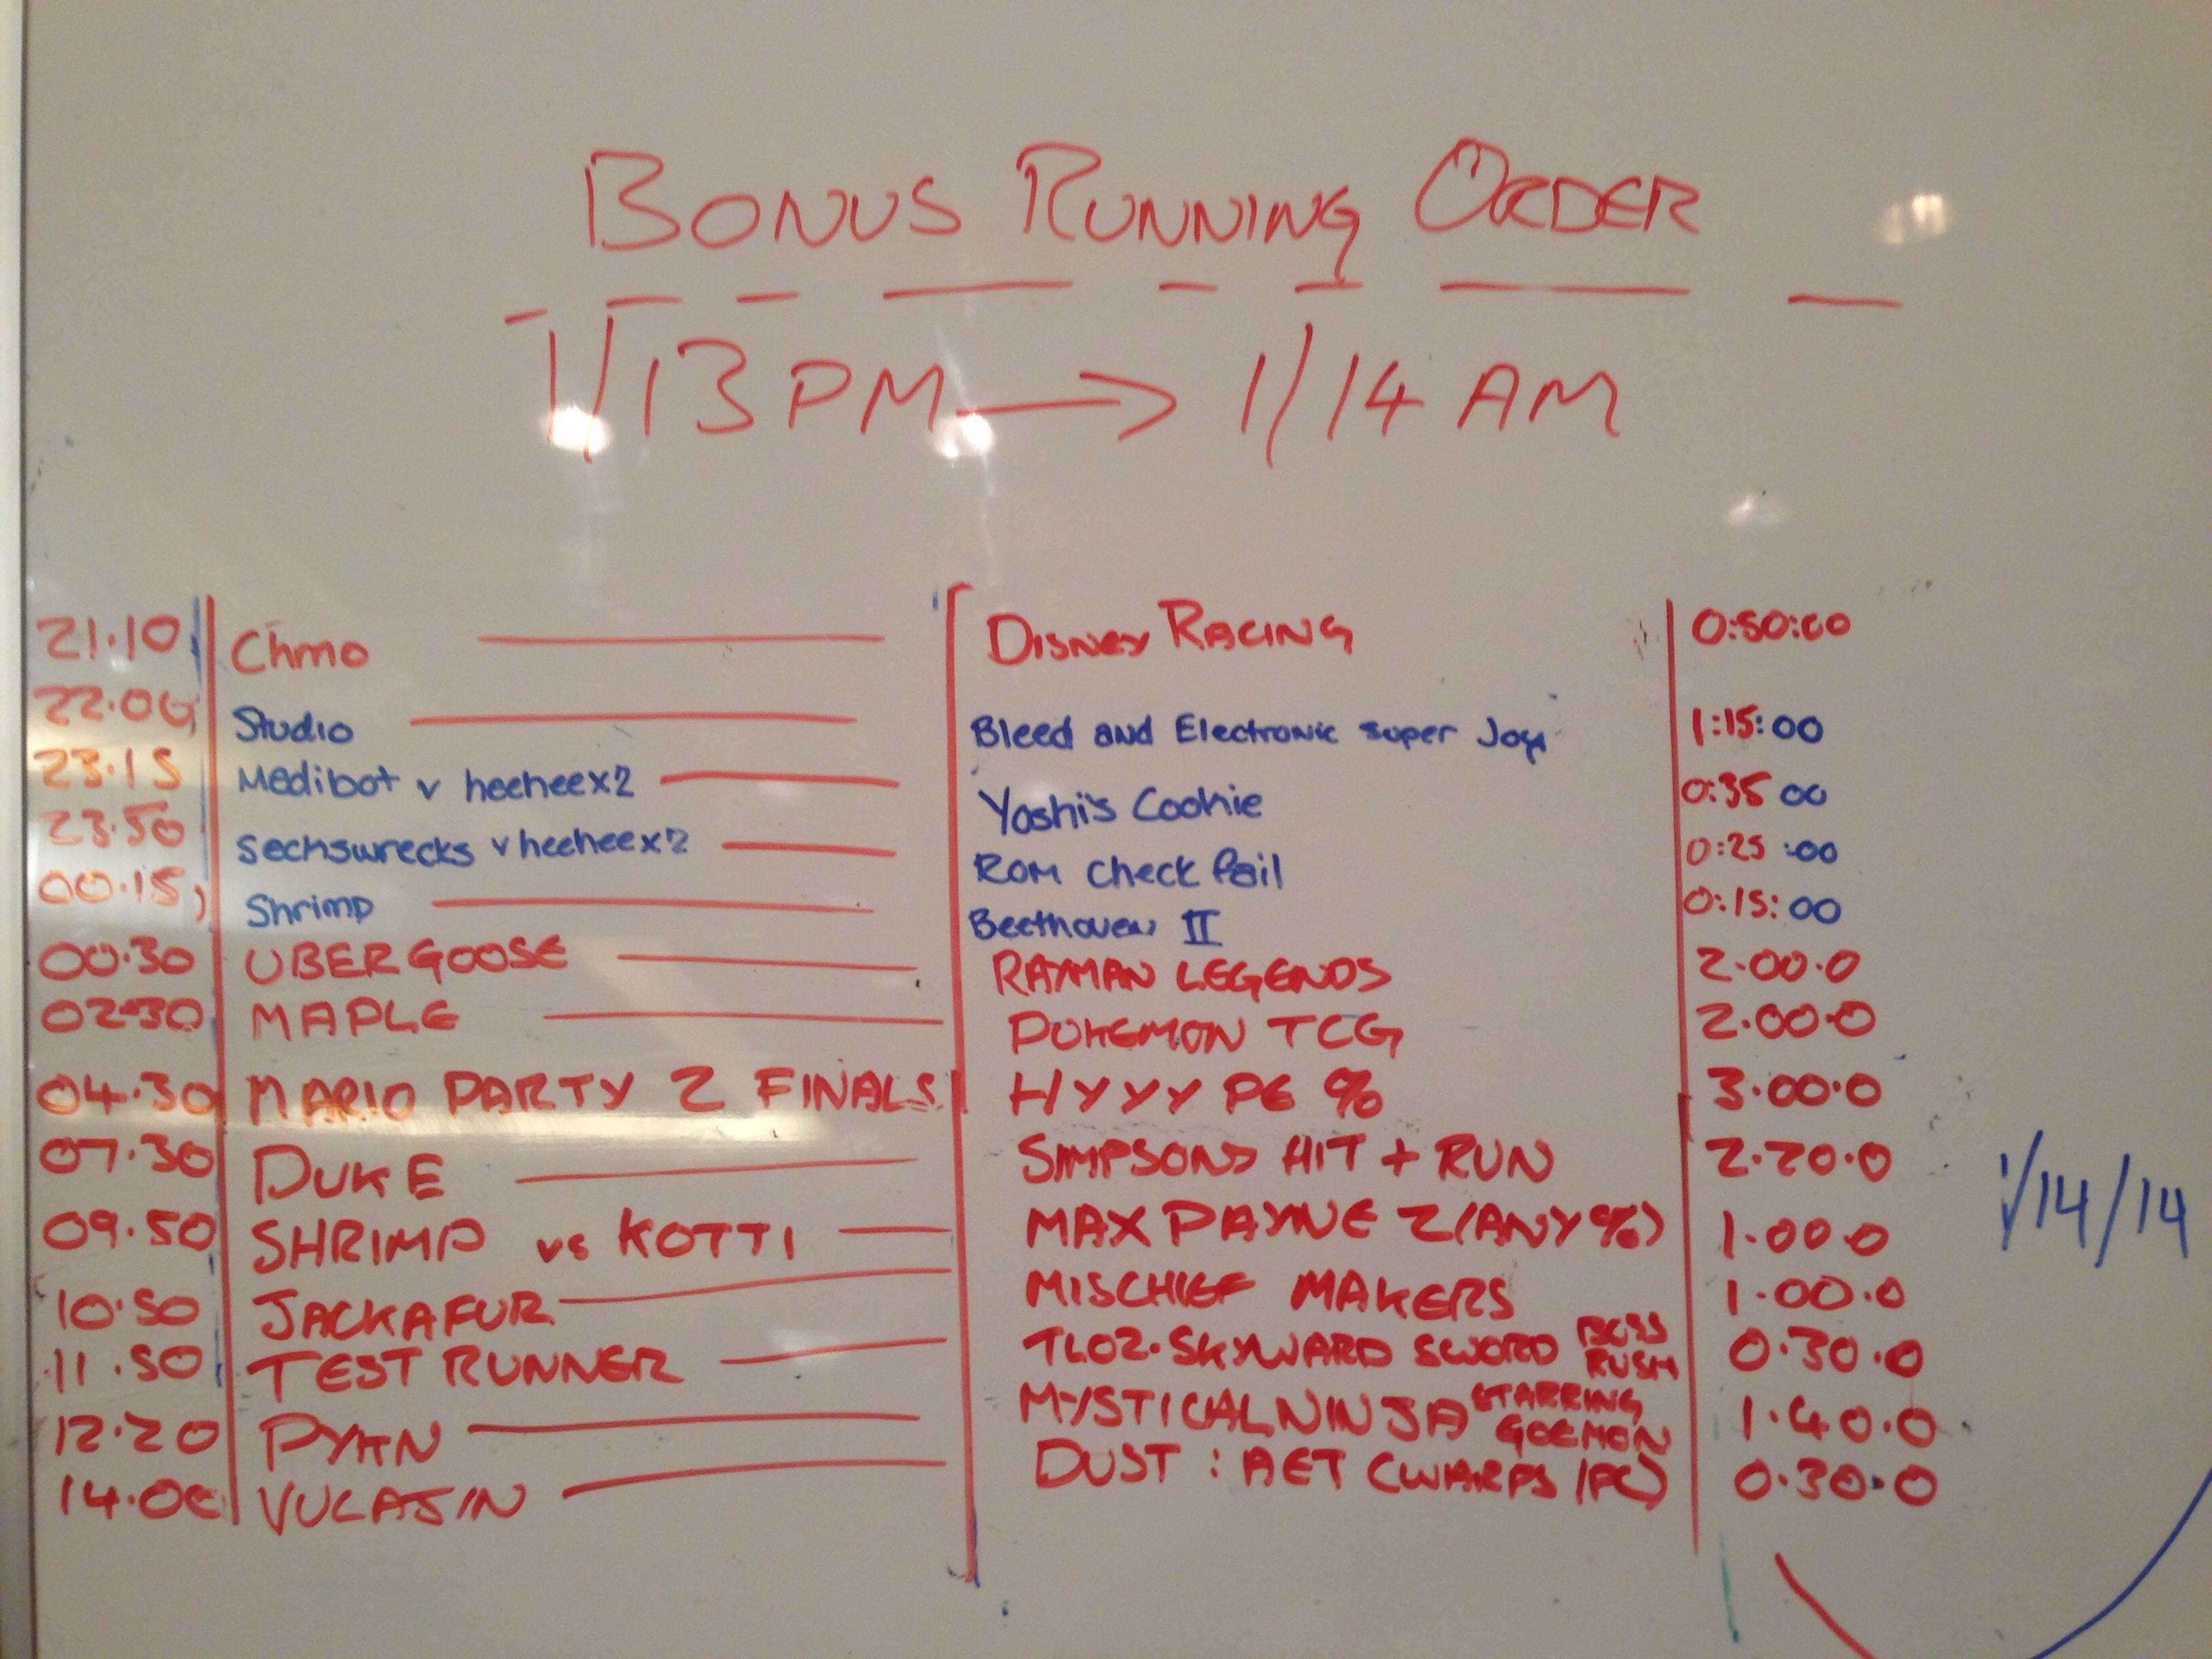 BONUS RUNNING ORDER
1/13 PM → 1/14 AM
21.10 Chmo DISNEY RACING 0:50:00
22.00 Studio Bleed and Electronic super Joy 1:15:00
23.15 Medibot v heeheex2 Yoshi's Cookie 0:35 00
23.50 Sechswrecks v heeheex2 ROM check fail 0:25:00
00.15 Shrimp Beethoven II 0:15:00
00.30 UBERGOOSE RAYMAN LEGENDS 2.00.0
02.30 MAPLE POKEMON TCG 2.00.0
04.30 MARIO PARTY 2 FINALS HYYYPE % 3.00.0
07.30 DUKE SIMPSONS HIT + RUN 2.20.0
09.50 SHRIMP vs KOTTI MAX PAYNE 2 (ANY %) 1.00.0
10.50 JACKAFUR MISCHIEF MAKERS 1.00.0
11.50 TEST RUNNER TLOZ.SKYWARD SWORD BOSS RUSH 0.30.0
12.20 PYAN MYSTICAL NINJA STARRING GOEMON 1.40.0
14.00 VULAJIN DUST : AET (WARPS/PC) 0.30.0
1/14/14